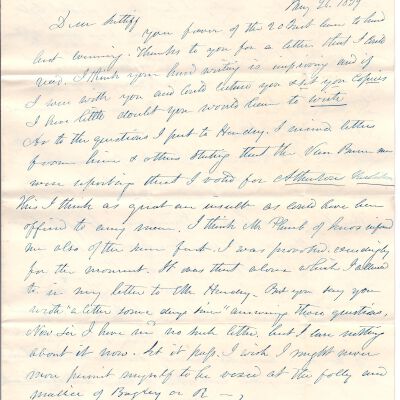 May 26. 1839
Dear
your favor of the 20 Inst came to hand
last evening. Thanks to you for a letter that I could
read. I think your hand writing is improving and if
I was with you and could lecture you & set you copies
I have little doubt you would learn to write
As to the questions I put to Hendey. I received letters
from him & others stating that the Van Buren men
were reporting that I voted for
This I think as great an insult as could have been
offered to any man. I think Mr Plumb of Knox informed
me also of the same fact. I was provoked exceedingly
for the moment. It was that alone which I alluded
to in my letter to Mr Hendey. But you say you
wrote "a letter some days since" answering those questions.
Now Sir I have rec'd no such letter, but I care nothing
about it now. Let it pass. I wish I might never
more permit myself to be vexed at the folly and
malice of Bagley or R —,